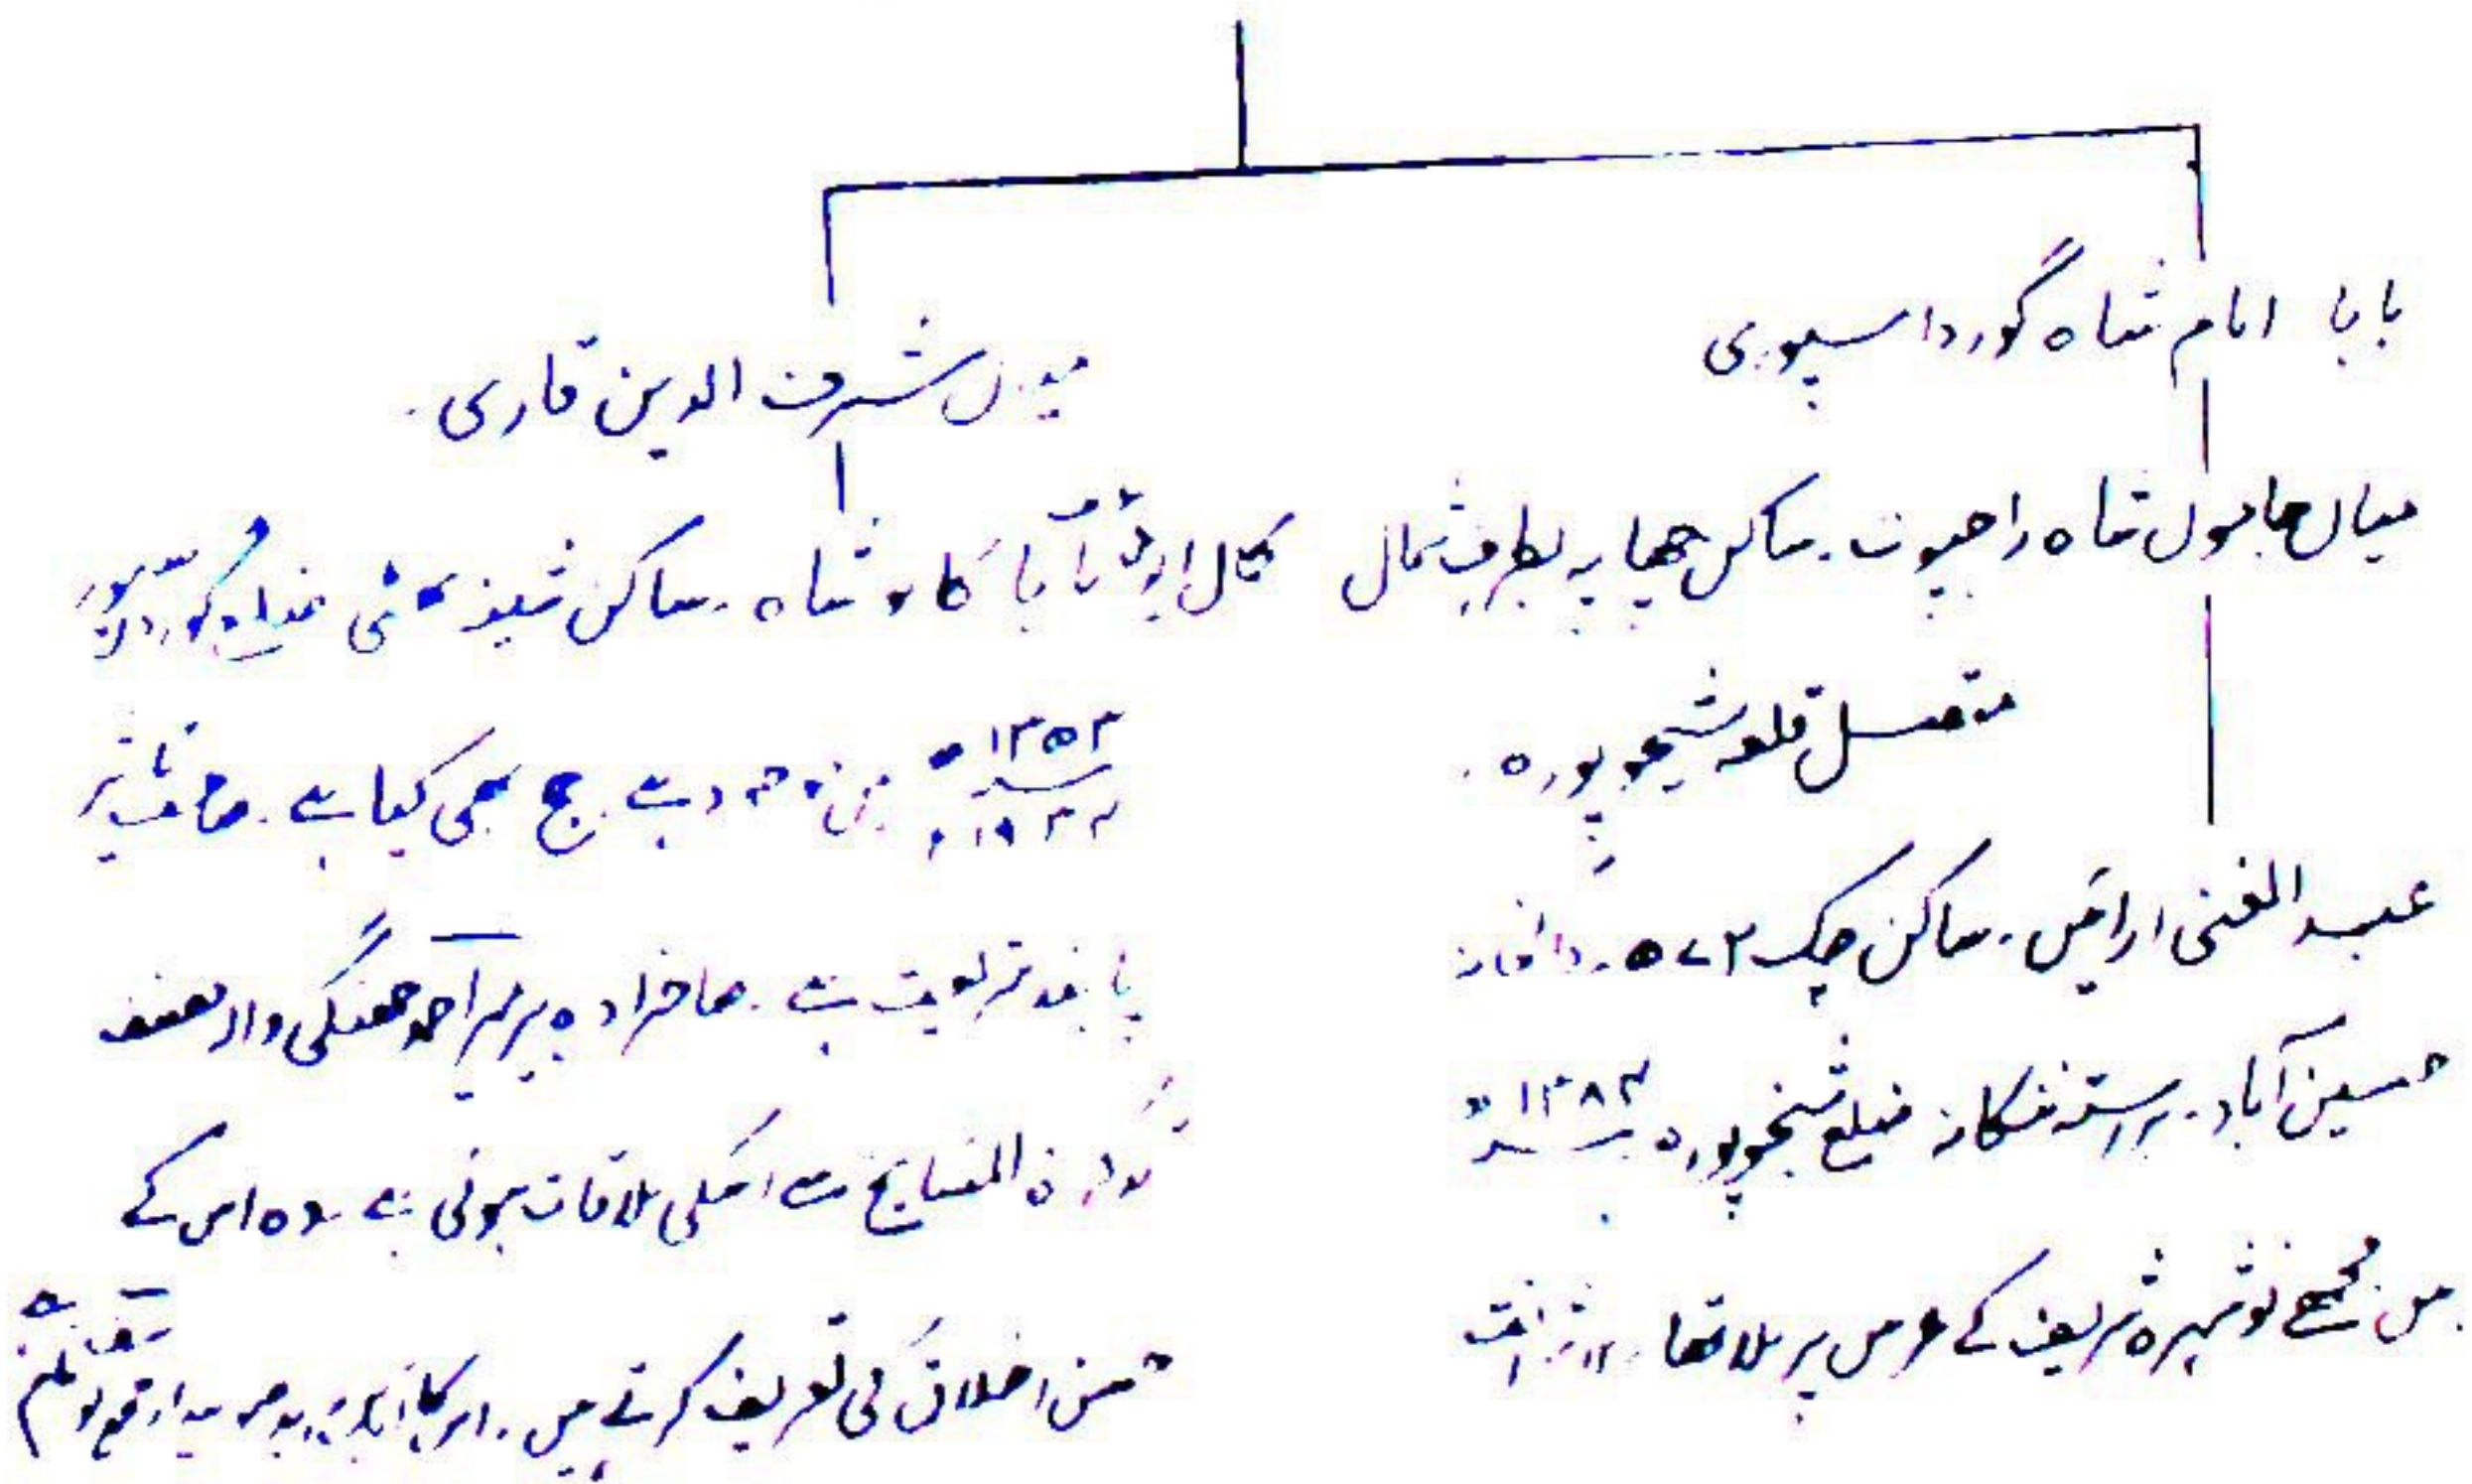 بابا امام شاہ گورداسپوری
میاں شرف الدین قاری۔
میاں شاہ راجپوت۔ ساکن چھاپہ بطرف شمال
متصل قلعہ شیخوپورہ۔
عبد الغنی ارائیں۔ ساکن چک ۵۷۲۔ ڈاکخانہ
حسین آباد۔ براستہ ننکانہ ضلع شیخوپورہ ۱۳۸۳ھ
میں مجھے نوشہرہ شریف کے عرس پر ملا تھا۔
بابا کالو شاہ۔ ساکن بھٹی ضلع گورداسپور
۱۳۵۳ھ ۱۹۳۴ء میں موجود ہے۔ حج بھی کیا ہے۔ صاحب تاثیر
پابند شریعت ہے۔ صاحبزادہ پیر احمد جھنگی والہ مصنف
المشایخ سے اسکی ملاقات ہوئی ہے۔ وہ اس کے
حسن اخلاق کی تعریف کرتے ہیں۔